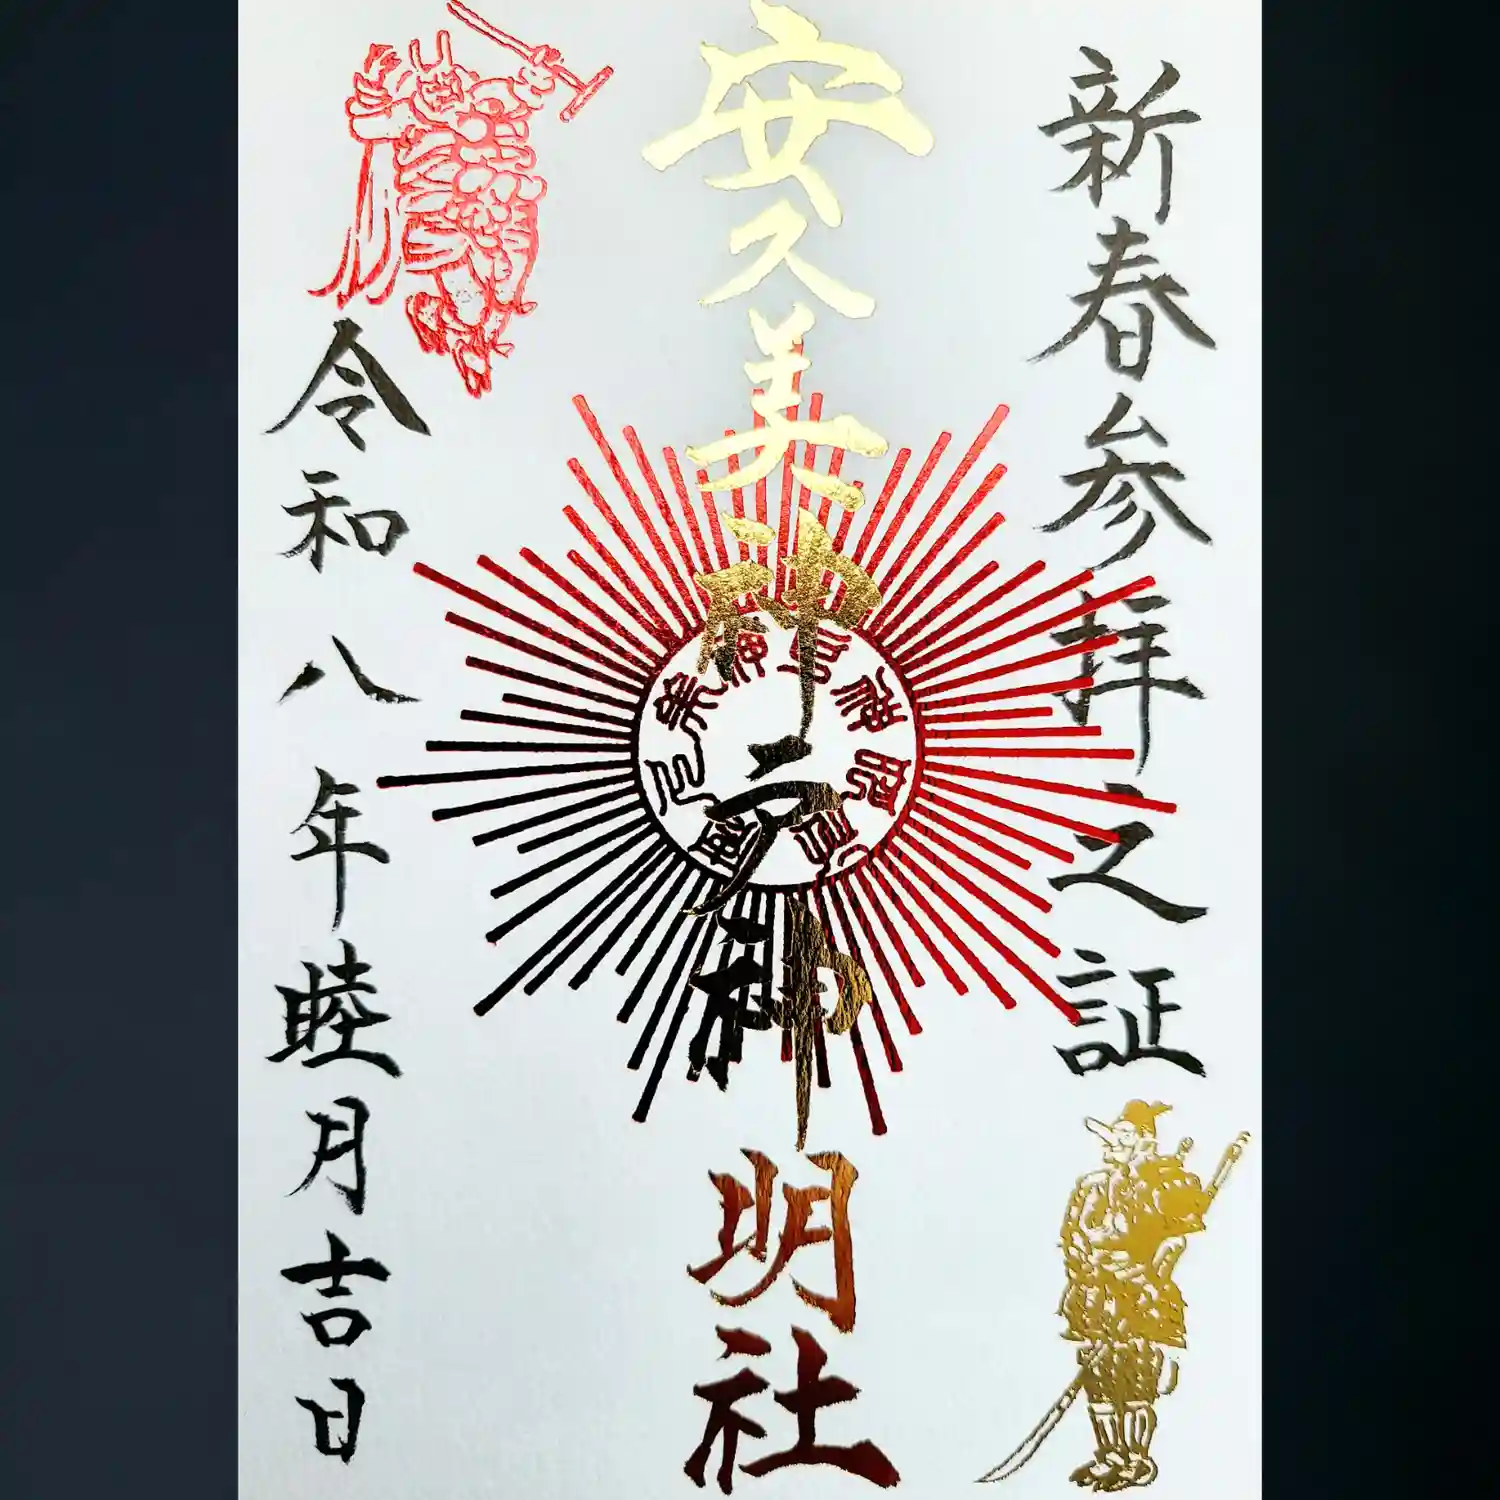 新春参拝之証
安久美神戸神明社
令和八年睦月吉日